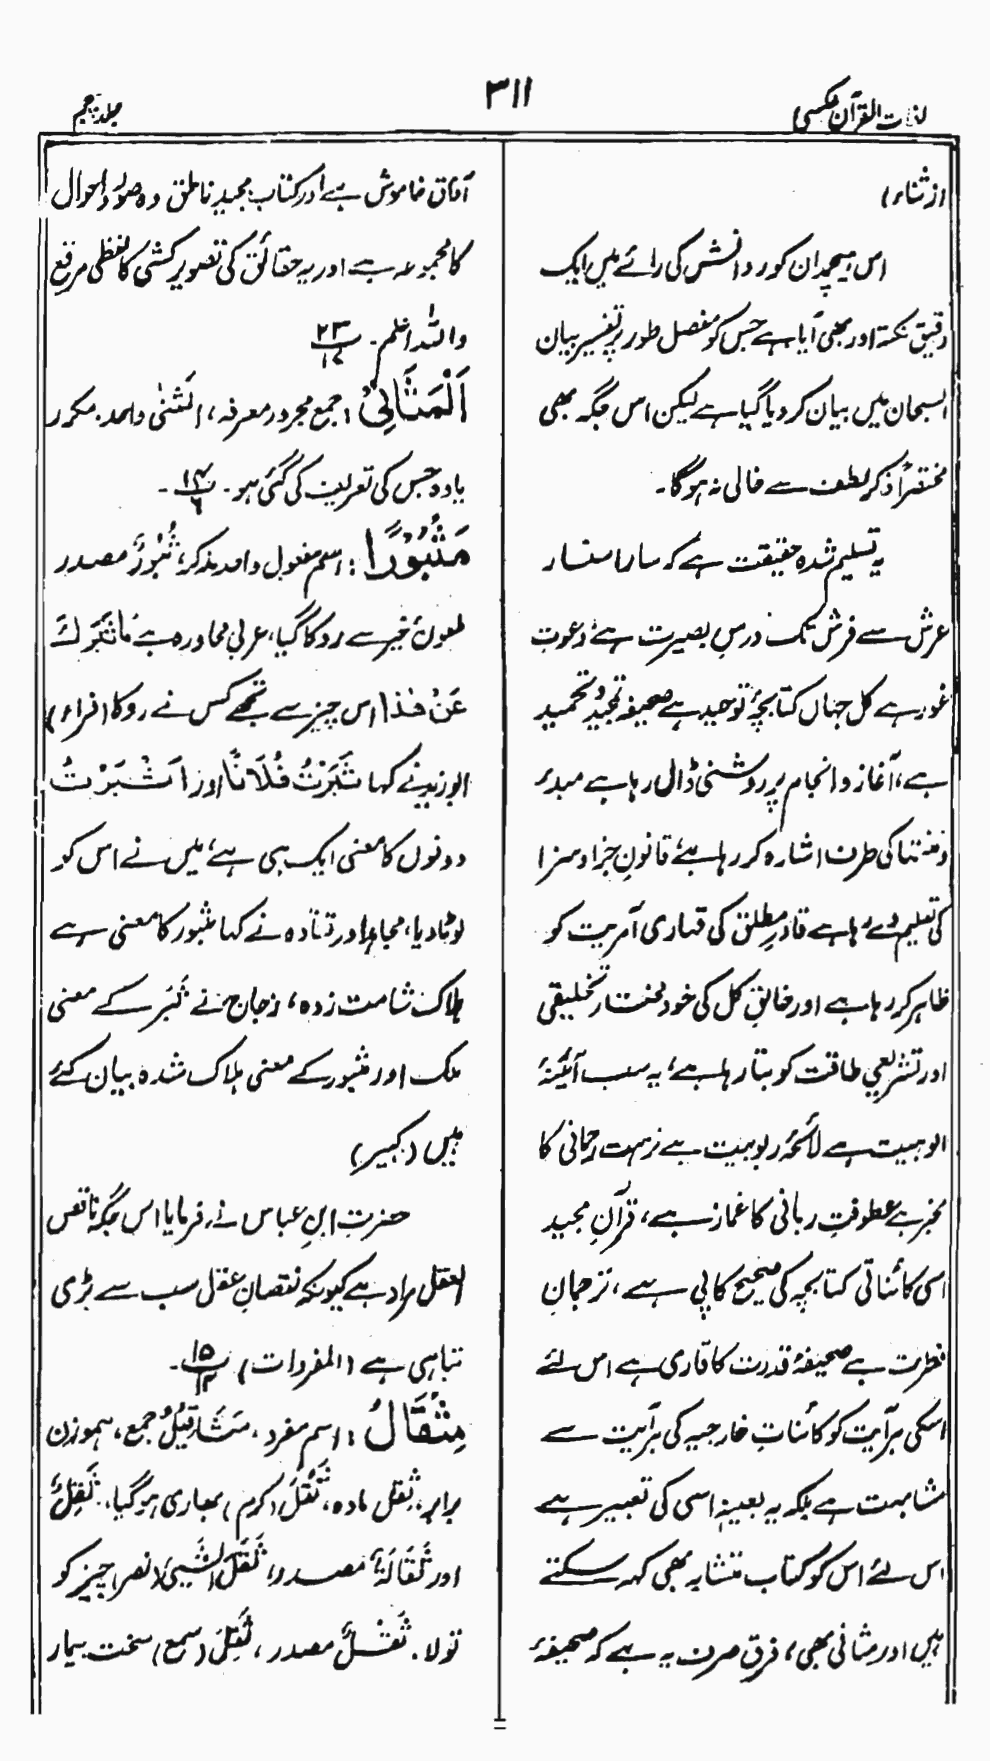 لغات القرآن عکسی
۳۱۱
جلد پنجم
از ثناء)
اس ہیچمدان کور دانش کی رائے میں ایک
دقیق نکتہ اور بھی آیا ہے جس کو مفصل طور پر تفسیر بیان
السبحان میں بیان کر دیا گیا ہے لیکن اس جگہ بھی
مختصراً ذکر لطف سے خالی نہ ہوگا۔
یہ تسلیم شدہ حقیقت ہے کہ سارا سنسار
عرش سے فرش تک درسِ بصیرت ہے، دعوتِ
غور ہے کل جہاں کتابچۂ توحید ہے صحیفہ تمجید و تحمید
ہے، آغاز و انجام پر روشنی ڈال رہا ہے مبدء
و منتہا کی طرف اشارہ کر رہا ہے، قانونِ جزاء و سزا
کی تعلیم دے رہا ہے قادرِ مطلق کی قہاری آمریت کو
ظاہر کر رہا ہے اور خالقِ کل کی خود مختار تخلیقی
اور تشریعی طاقت کو بتا رہا ہے، یہ سب آئینۂ
الوہیت ہے لائحۂ ربوبیت ہے نزہت رحمانی کا
مخبر ہے عطوفتِ ربانی کا غماز ہے، قرآنِ مجید
اسی کائناتی کتابچہ کی صحیح کاپی ہے، ترجمانِ
فطرت ہے صحیفۂ قدرت کا قاری ہے اس لئے
اسکی ہر آیت کو کائناتِ خارجیہ کی ہر آیت سے
مشابہت ہے بلکہ یہ بعینہٖ اسی کی تعبیر ہے
اس لئے اس کو کتاب متشابہ بھی کہہ سکتے
ہیں اور مثانی بھی، فرق صرف یہ ہے کہ صحیفۂ
آفاق خاموش ہے اور کتاب مجید ناطق وہ صور و احوال
کا مجموعہ ہے اور یہ حقائق کی تصویر کشی کا لفظی مرقع
واللہ اعلم۔ ۲۳/۱۷
اَلْمَثَانِیْ: جمع مجرور معرفہ، اَلْمَثْنٰی واحد۔ مکرر
یا وہ جس کی تعریف کی گئی ہو۔ ۱۴/۶۔
مَثْبُوْرًا: اسم مفعول واحد مذکر، ثُبُوْرٌ مصدر
ملعون، خیر سے روکا گیا، عربی محاورہ ہے مَا ثَبَرَكَ
عَنْ هٰذَا اس چیز سے تجھے کس نے روکا (فراء)
ابو زید نے کہا ثَبَرْتُ فُلَانًا اور اَثْبَرْتُ
دونوں کا معنی ایک ہی ہے، میں نے اس کو
لوٹا دیا، مجاہد اور قتادہ نے کہا مثبور کا معنی ہے
ہلاک شامت زدہ، زجاج نے ثَبَر کے معنی
ہلک اور مثبور کے معنی ہلاک شدہ بیان کئے
ہیں (کبیر)
حضرت ابنِ عباس نے فرمایا اس جگہ ناقص
العقل مراد ہے کیونکہ نقصانِ عقل سب سے بڑی
تباہی ہے (المفردات) ۱۵/۱۲۔
مِثْقَالُ: اسم مفرد، مَثَاقِيْلُ جمع، ہموزن
برابر، ثقل مادہ، ثَقُلَ (کرم) بھاری ہو گیا، ثَقِلٌ
اور ثَقَالَةٌ مصدر، ثَقَلَ الشَّیْئَ (نصر) چیز کو
تولا۔ ثَقْلٌ مصدر، ثَقِلَ (سمع) سخت بیمار